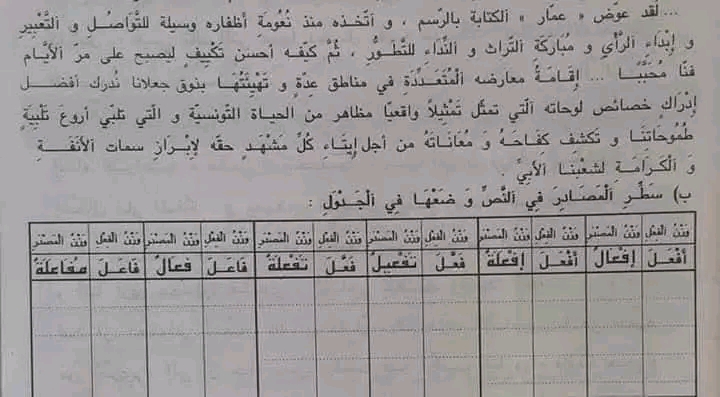 ... لقد عوّض « عمّار » الكتابة بالرّسم ، و اتّخذه منذ نُعُومَةِ أظفاره وسيلة للتَّوَاصُلِ و التَّعْبِيرِ
و إِبْدَاءِ الرَّأْيِ و مُبَارَكَةِ التّراث و النِّدَاءِ للتَّطَوُّرِ ، ثُمَّ كَيّفه أحسن تَكْيِيفٍ ليصبح على مَرّ الأيّام
فنّا مُحَبَّبًا ... إقَامَةُ معارضه الْمُتَعَدِّدَة في مناطق عِدّةٍ و تَهْيِئَتُهَا بذوق جعلانا نُدرك أفضل
إِدْرَاكٍ خصائص لوحاته الّتي تمثّل تَمْثِيلاً واقعيّا مظاهر من الحياة التّونسيّة و الّتي تلبّي أروعَ تَلْبِيَةٍ
طُمُوحَاتِنَا و تَكشف كِفَاحَهُ و مُعَانَاتَهُ من أجل إِيتَاءِ كُلِّ مَشْهَدٍ حقّه لِإِبْرَازِ سمات الأَنَفَةِ
وَ الْكَرَامَة لشعْبنَا الأبيّ .
ب) سَطِّرِ الْمَصَادِرَ فِي النَّصِّ وَ ضَعْهَا فِي الْجَدْوَلِ :
وَزْنُ الفِعْل وَزْنُ المَصْدَر وَزْنُ الفِعْل وَزْنُ المَصْدَر وَزْنُ الفِعْل وَزْنُ المَصْدَر وَزْنُ الفِعْل وَزْنُ المَصْدَر وَزْنُ الفِعْل وَزْنُ المَصْدَر وَزْنُ الفِعْل وَزْنُ المَصْدَر
أَفْعَلَ إفْعَالٌ أَفْعَلَ إفْعَلَةٌ فَعَّلَ تَفْعِيلٌ فَعَّلَ تَفْعِلَةٌ فَاعَلَ فِعَالٌ فَاعَلَ مُفَاعَلَةٌ